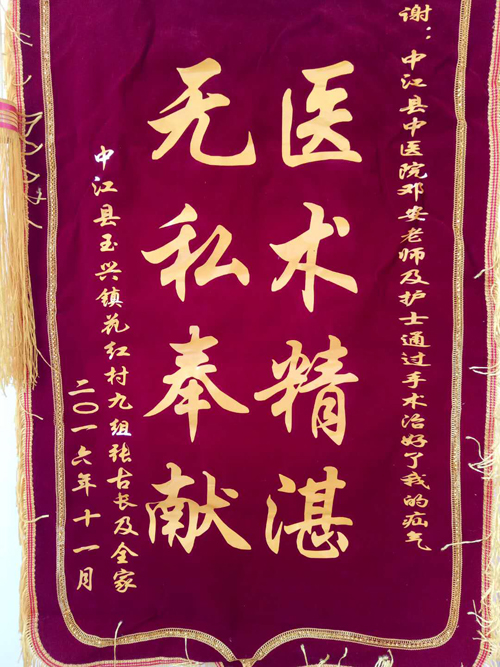 谢：中江县中医院邓安老师及护士通过手术治好了我的疝气
医术精湛
无私奉献
中江县玉兴镇苑红村九组张古长及全家
二〇一六年十一月